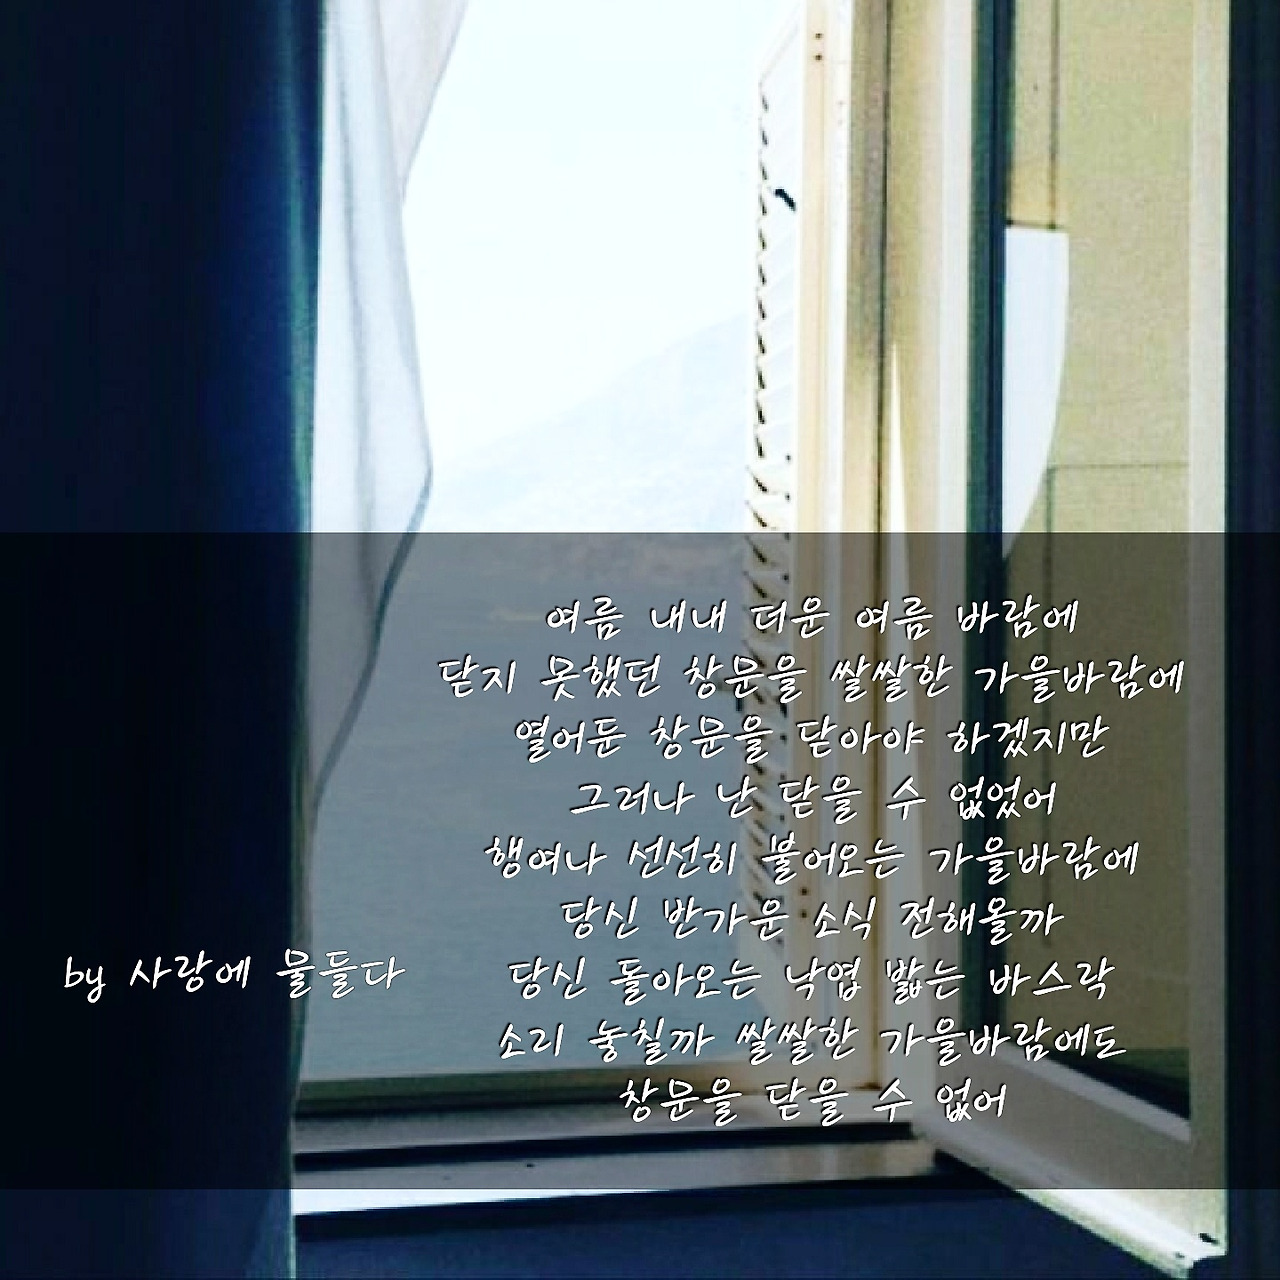 여름 내내 더운 여름 바람에
닫지 못했던 창문을 쌀쌀한 가을바람에
열어둔 창문을 닫아야 하겠지만
그러나 난 닫을 수 없었어
행여나 선선히 불어오는 가을바람에
당신 반가운 소식 전해올까
당신 돌아오는 낙엽 밟는 바스락
소리 놓칠까 쌀쌀한 가을바람에도
창문을 닫을 수 없어
by 사랑에 물들다